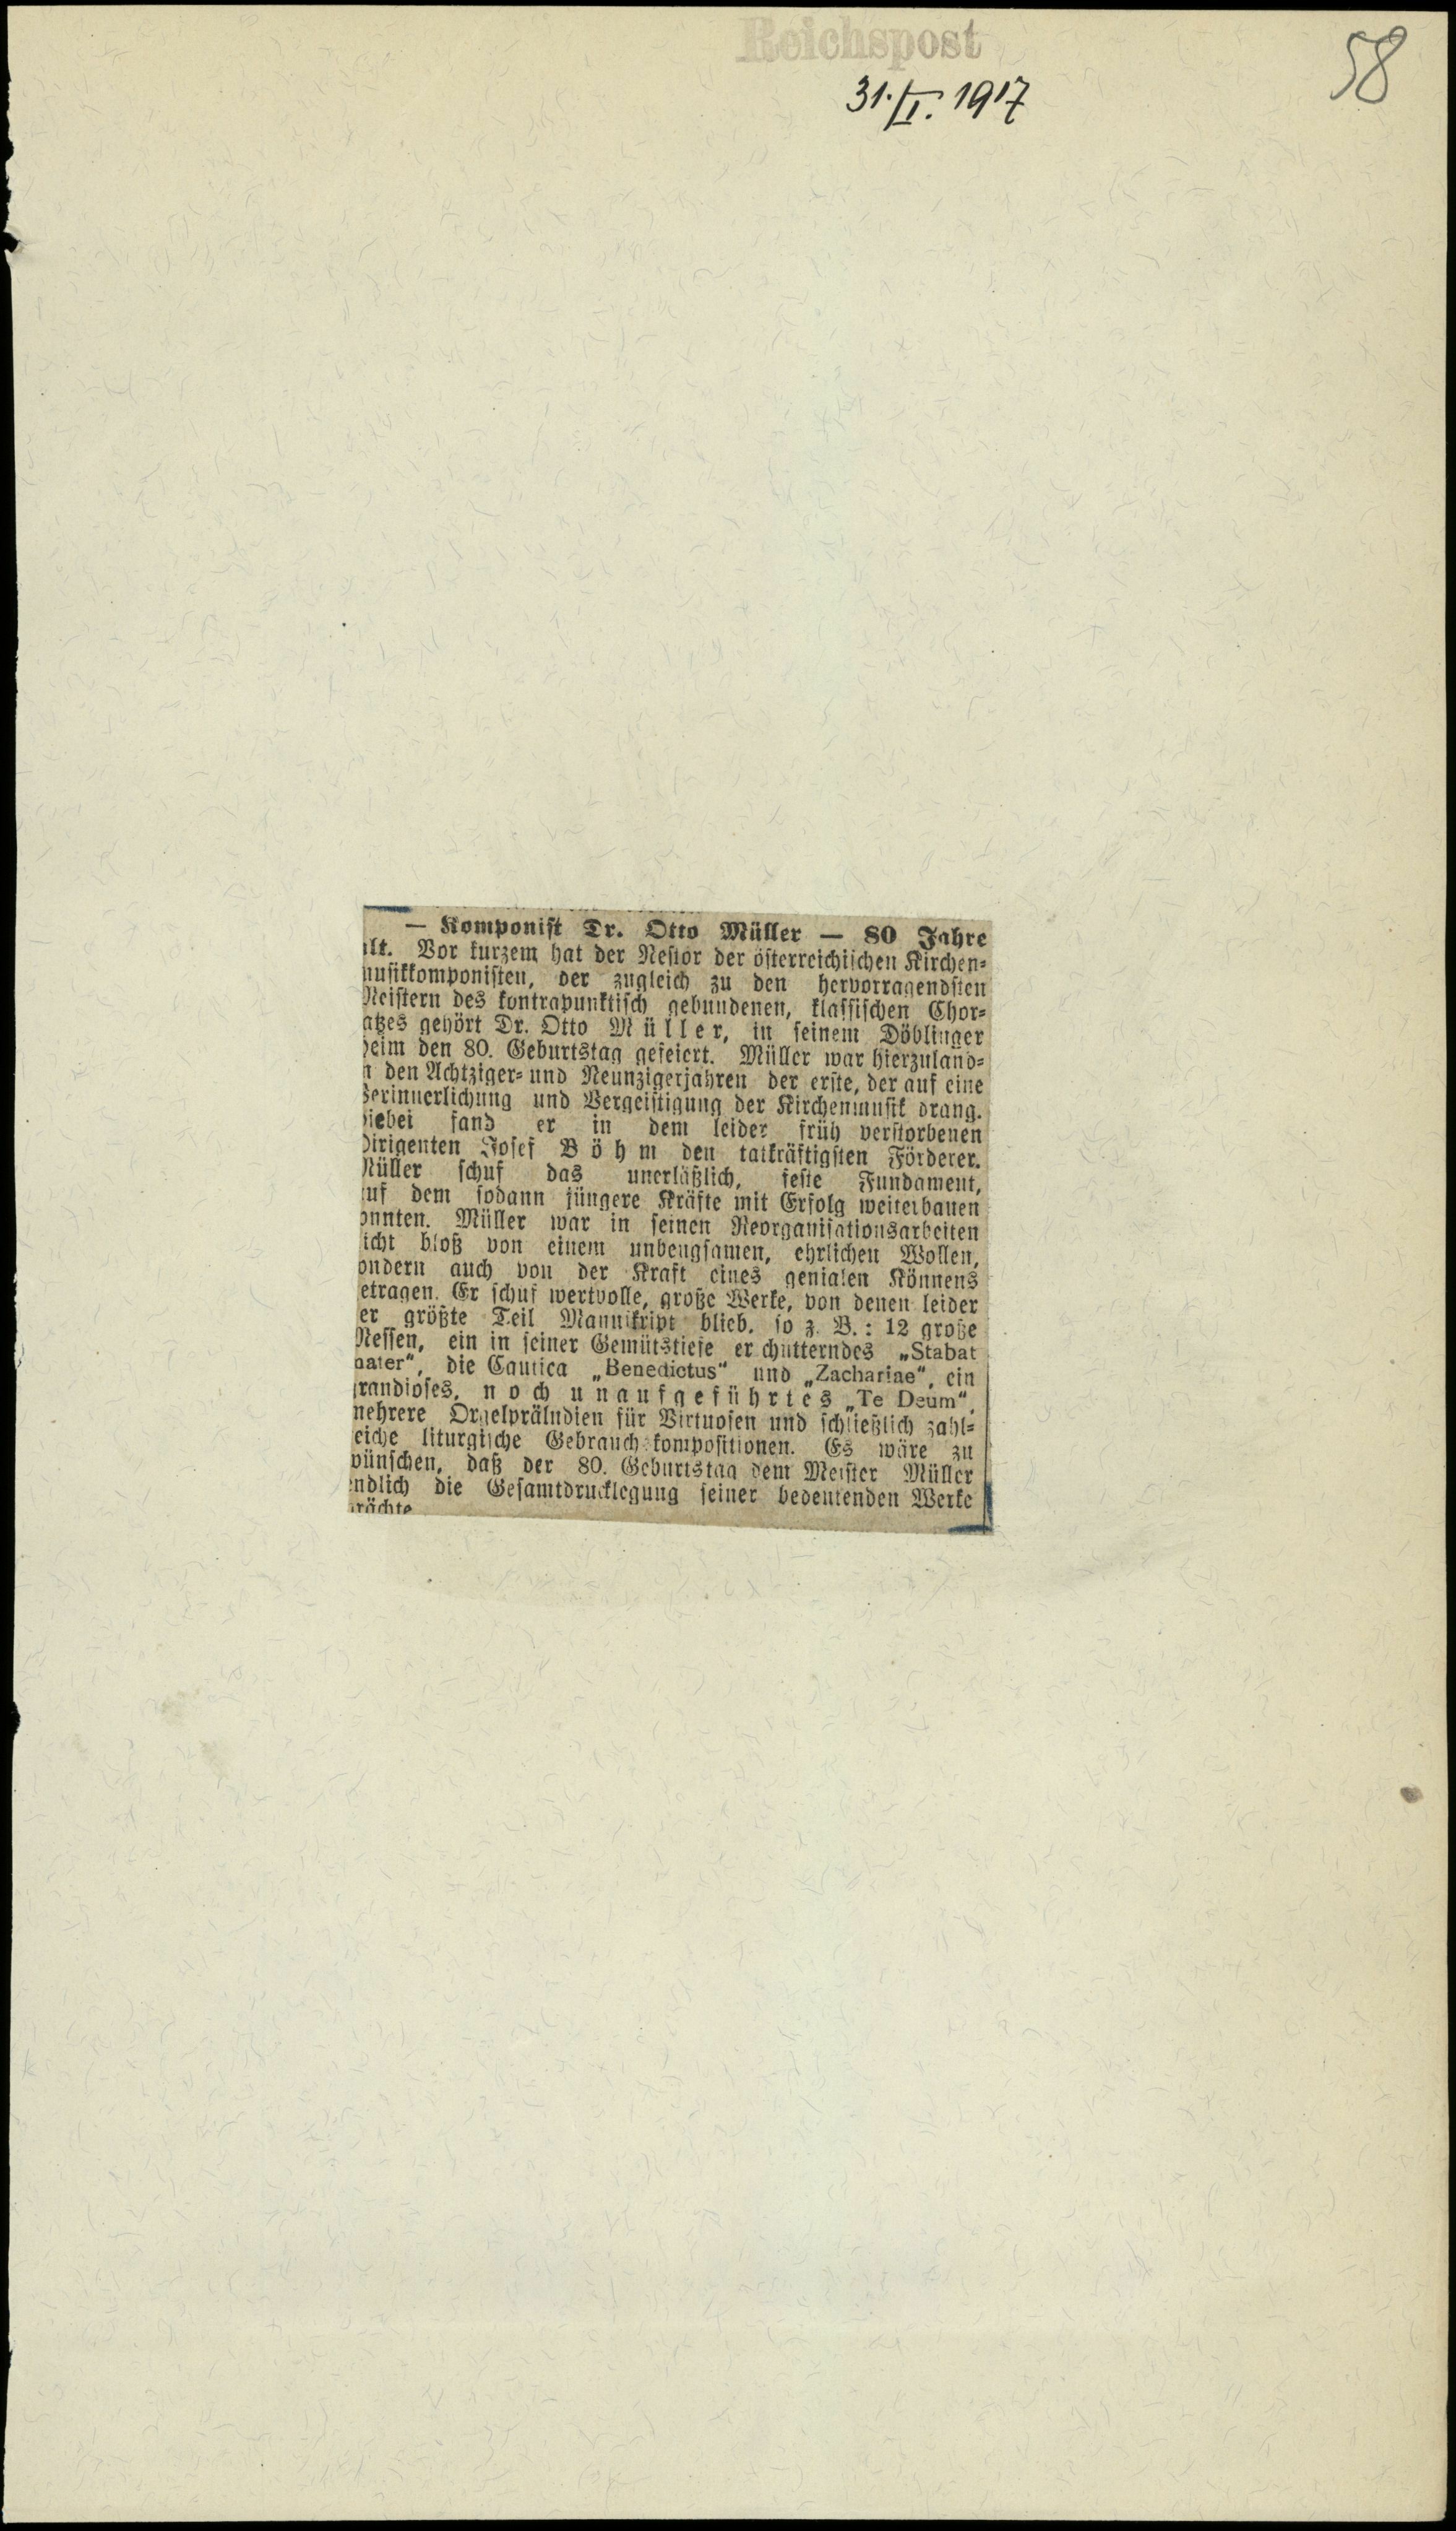 Reichspost
58
31./I. 1917
— Komponist Dr. Otto Müller — 80 Jahre
alt. Vor kurzem hat der Nestor der österreichischen Kirchen-
musikkomponisten, der zugleich zu den hervorragendsten
Meistern des kontrapunktisch gebundenen, klassischen Chor-
atzes gehört Dr. Otto Müller, in seinem Döblinger
heim den 80. Geburtstag gefeiert. Müller war hierzuland-
n den Achtziger- und Neunzigerjahren der erste, der auf eine
Verinnerlichung und Vergeistigung der Kirchenmusik drang.
hiebei fand er in dem leider früh verstorbenen
Dirigenten Josef Böhm den tatkräftigsten Förderer.
Müller schuf das unerläßlich, feste Fundament,
uf dem sodann jüngere Kräfte mit Erfolg weiterbauen
onnten. Müller war in seinen Reorganisationsarbeiten
icht bloß von einem unbeugsamen, ehrlichen Wollen,
ondern auch von der Kraft eines genialen Könnens
etragen. Er schuf wertvolle, große Werke, von denen leider
er größte Teil Manuskript blieb, so z. B.: 12 große
Messen, ein in seiner Gemütstiefe erschütterndes „Stabat
mater“, die Cantica „Benedictus“ und „Zachariae“, ein
grandioses, noch unaufgeführtes „Te Deum“,
mehrere Orgelpräludien für Virtuosen und schließlich zahl-
eiche liturgische Gebrauchskompositionen. Es wäre zu
wünschen, daß der 80. Geburtstag dem Meister Müller
endlich die Gesamtdrucklegung seiner bedeutenden Werke
brächte